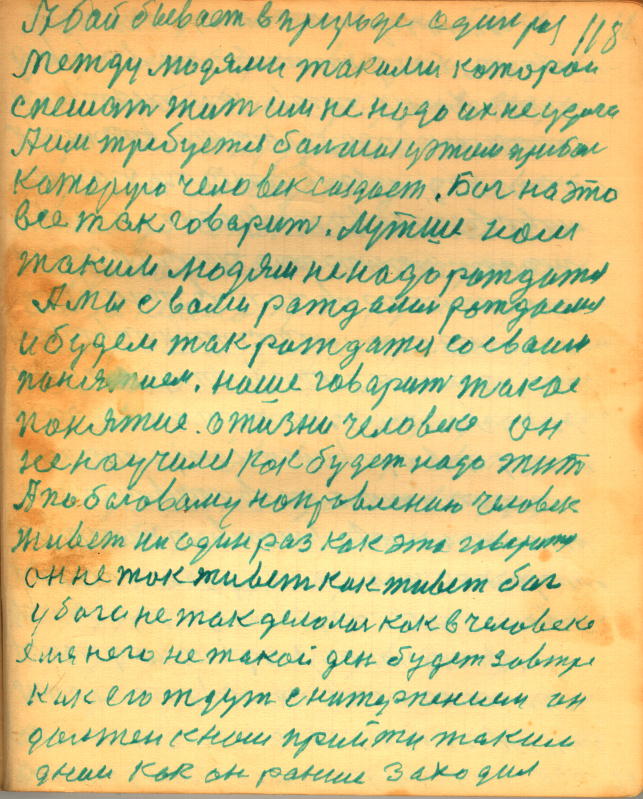 А бой бывает в природе один раз 118
между людями такими которои
спешат жит им не надо их не удача
А им требуется балшая у этом прибол
которую человек создает. Бог на это
все так говарит. Лутше нам
таким людям не надо рождатся
А мы с вами раждались рождаемся
и будем так рождатся со сваим
понятием. наше говарит такое
понятие. о жизни человеке он
не научился как будет надо жит
А по боговаму направлению человек
живет ни один раз как это говарится
он не так живет как живет бог
у бога не так делолося как в человеке
для него не такой ден будет завтре
как его ждут с натерпением он
должен к нам прийти таким
днем как он ранше заходил